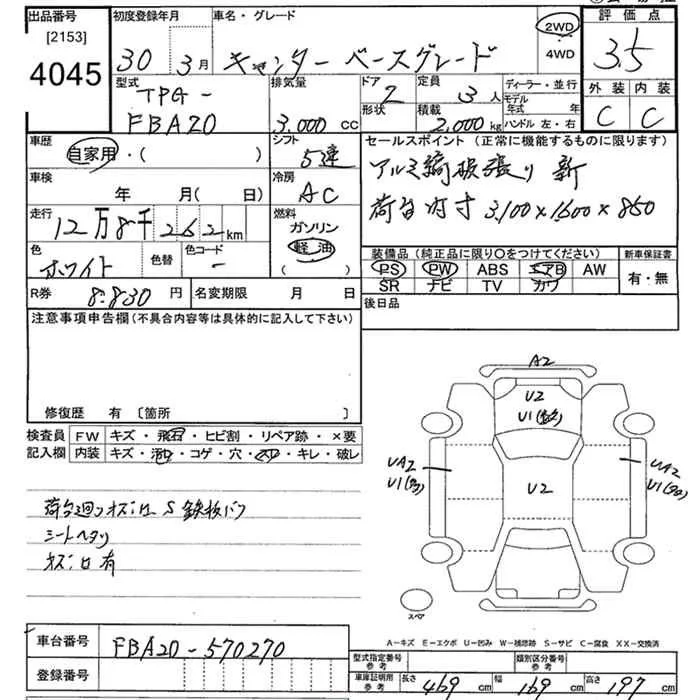 出品番号
[2153]
4045
初度登録年月
30 年 3 月
車名・グレード
キャンター ベースグレード
2WD
4WD
評価点
3.5
外装 内装
C C
型式
TPG-
FBA20
排気量
3.000 cc
ドア
2
形状
定員
3 人
積載
2,000 kg
ディーラー・並行
モデル年式 年
ハンドル 左・右
車歴
自家用・( )
シフト
5速
セールスポイント (正常に機能するものに限ります)
アルミ縞板張り 新
荷台内寸 3,100×1600×860
車検
年 月( 日)
冷房
AC
走行
12万8千262km
燃料
ガソリン
軽油
色
ホワイト
色替
色コード
-
装備品 (純正品に限り○をつけてください)
PS PW ABS エアB AW
SR ナビ TV カワ
新車保証書
有・無
R券 8.830 円
名変期限 月 日
後日品
注意事項申告欄 (不具合内容等は具体的に記入して下さい)
修復歴 有 〔箇所 〕
検査員記入欄
FW キズ・飛石・ヒビ割・リペア跡・×要
内装 キズ・汚れ・コゲ・穴・スレ・キレ・破レ
シートヘタリ
サビ口有
A2
U2
U2
UA2
UA2
スペア
A-キズ E-エクボ U-凹み W-補修跡 S-サビ C-腐食 XX-交換済
車台番号 FBA20-570270
登録番号
型式指定番号 参考
類別区分番号 参考
車庫証明用 参考 長さ 469 cm 幅 169 cm 高さ 197 cm